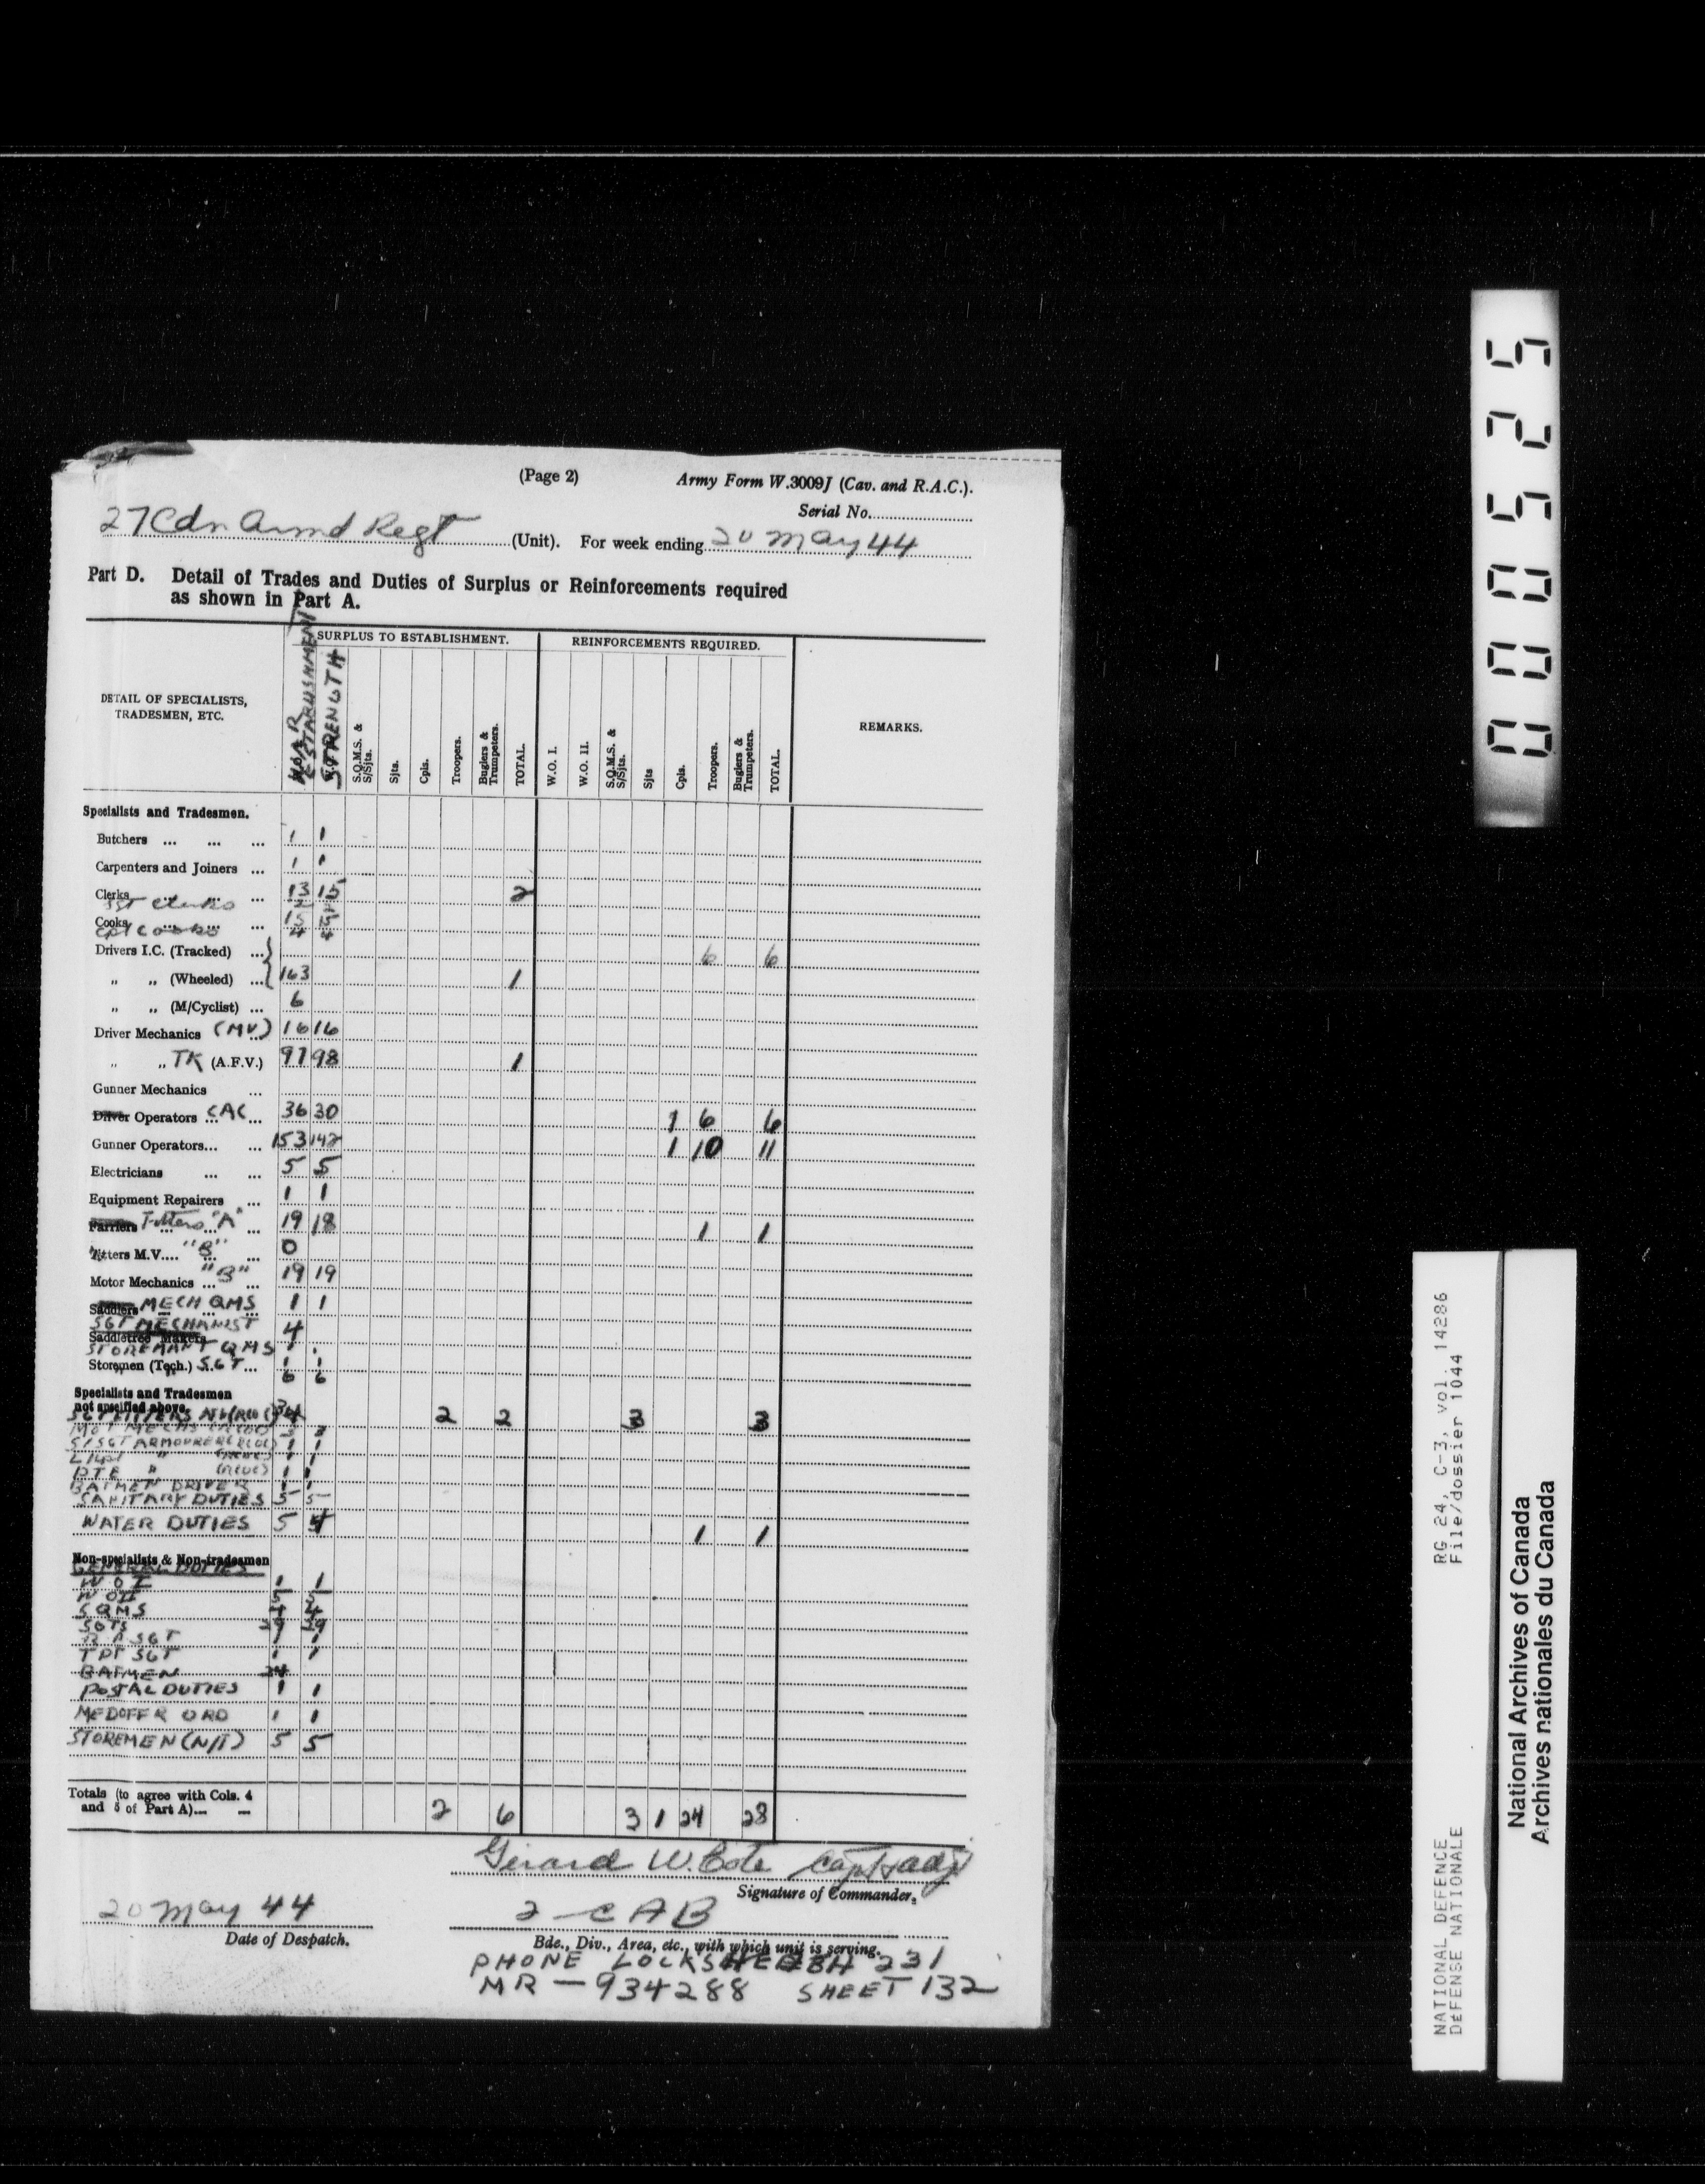 (Page 2) Army Form W.3009J (Cav. and R.A.C.).
Serial No.
27 Cdn Armd Regt (Unit). For week ending 20 May 44
Part D. Detail of Trades and Duties of Surplus or Reinforcements required
as shown in Part A.
DETAIL OF SPECIALISTS,
TRADESMEN, ETC.
WAR ESTABLISHMENT
STRENGTH
SURPLUS TO ESTABLISHMENT.
S.Q.M.S. & S/Sjts.
Sjts.
Cpls.
Troopers.
Buglers & Trumpeters.
TOTAL.
REINFORCEMENTS REQUIRED.
W.O. I.
W.O. II.
S.Q.M.S. & S/Sjts.
Sjts
Cpls.
Troopers.
Buglers & Trumpeters.
TOTAL.
REMARKS.
Specialists and Tradesmen.
Butchers ... ... ... 1 1
Carpenters and Joiners ... 1 1
Clerks ... 13 15 2
SGT Clerks 2 2
Cooks ... 15 15
Cpl Cooks 4 4
Drivers I.C. (Tracked) ... 6 6
„ „ (Wheeled) ... 163 1
„ „ (M/Cyclist) ... 6
Driver Mechanics (MV) ... 16 16
„ „ TK (A.F.V.) 97 98 1
Gunner Mechanics ...
Driver Operators ... CAC ... 36 30 1 6 6
Gunner Operators... ... 153 142 1 10 11
Electricians ... ... 5 5
Equipment Repairers ... 1 1
Farriers Fitters "A" ... 19 18 1 1
Fitters M.V.... "B" ... 0
Motor Mechanics ... "B" ... 19 19
Saddlers MECH QMS 1 1
SGT MECHANIST 4
Saddletree Makers
STOREMAN T QMS 1 1
Storemen (Tech.) SGT... 1 1
6 6
Specialists and Tradesmen
not specified above
SGT FITTERS 2 2 3 3
S/SGT ARMOURER 1 1
L/SGT " 1 1
PTE " 1 1
BATMEN DRIVER 1 1
SANITARY DUTIES 5 5
WATER DUTIES 5 4 1 1
Non-specialists & Non-tradesmen
GENERAL DUTIES
W O I 1 1
W OII 5 5
SQMS 4 4
SGTS 29 29
SGT 1 1
TPT SGT 1 1
BATMEN 24
POSTAL DUTIES 1 1
MED OFFR ORD 1 1
STOREMEN (N/T) 5 5
Totals (to agree with Cols. 4
and 5 of Part A)... 2 6 3 1 24 28
Gerard W. Cote Capt & adjt
Signature of Commander.
20 May 44 2 CAB
Date of Despatch. Bde., Div., Area, etc., with which unit is serving.
PHONE LOCKSHEATH 231
MR — 934288 SHEET 132
00525
RG 24, C-3, vol. 14286
File/dossier 1044
NATIONAL DEFENCE
DÉFENSE NATIONALE
National Archives of Canada
Archives nationales du Canada